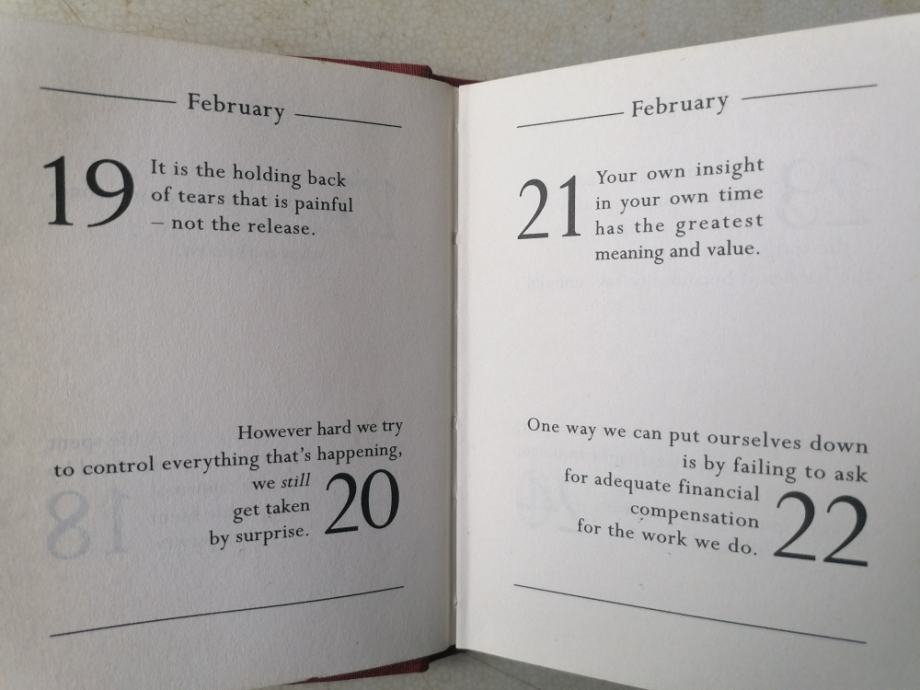 February
19
It is the holding back
of tears that is painful
– not the release.
However hard we try
to control everything that's happening,
we still
get taken
by surprise.
20
February
21
Your own insight
in your own time
has the greatest
meaning and value.
One way we can put ourselves down
is by failing to ask
for adequate financial
compensation
for the work we do.
22